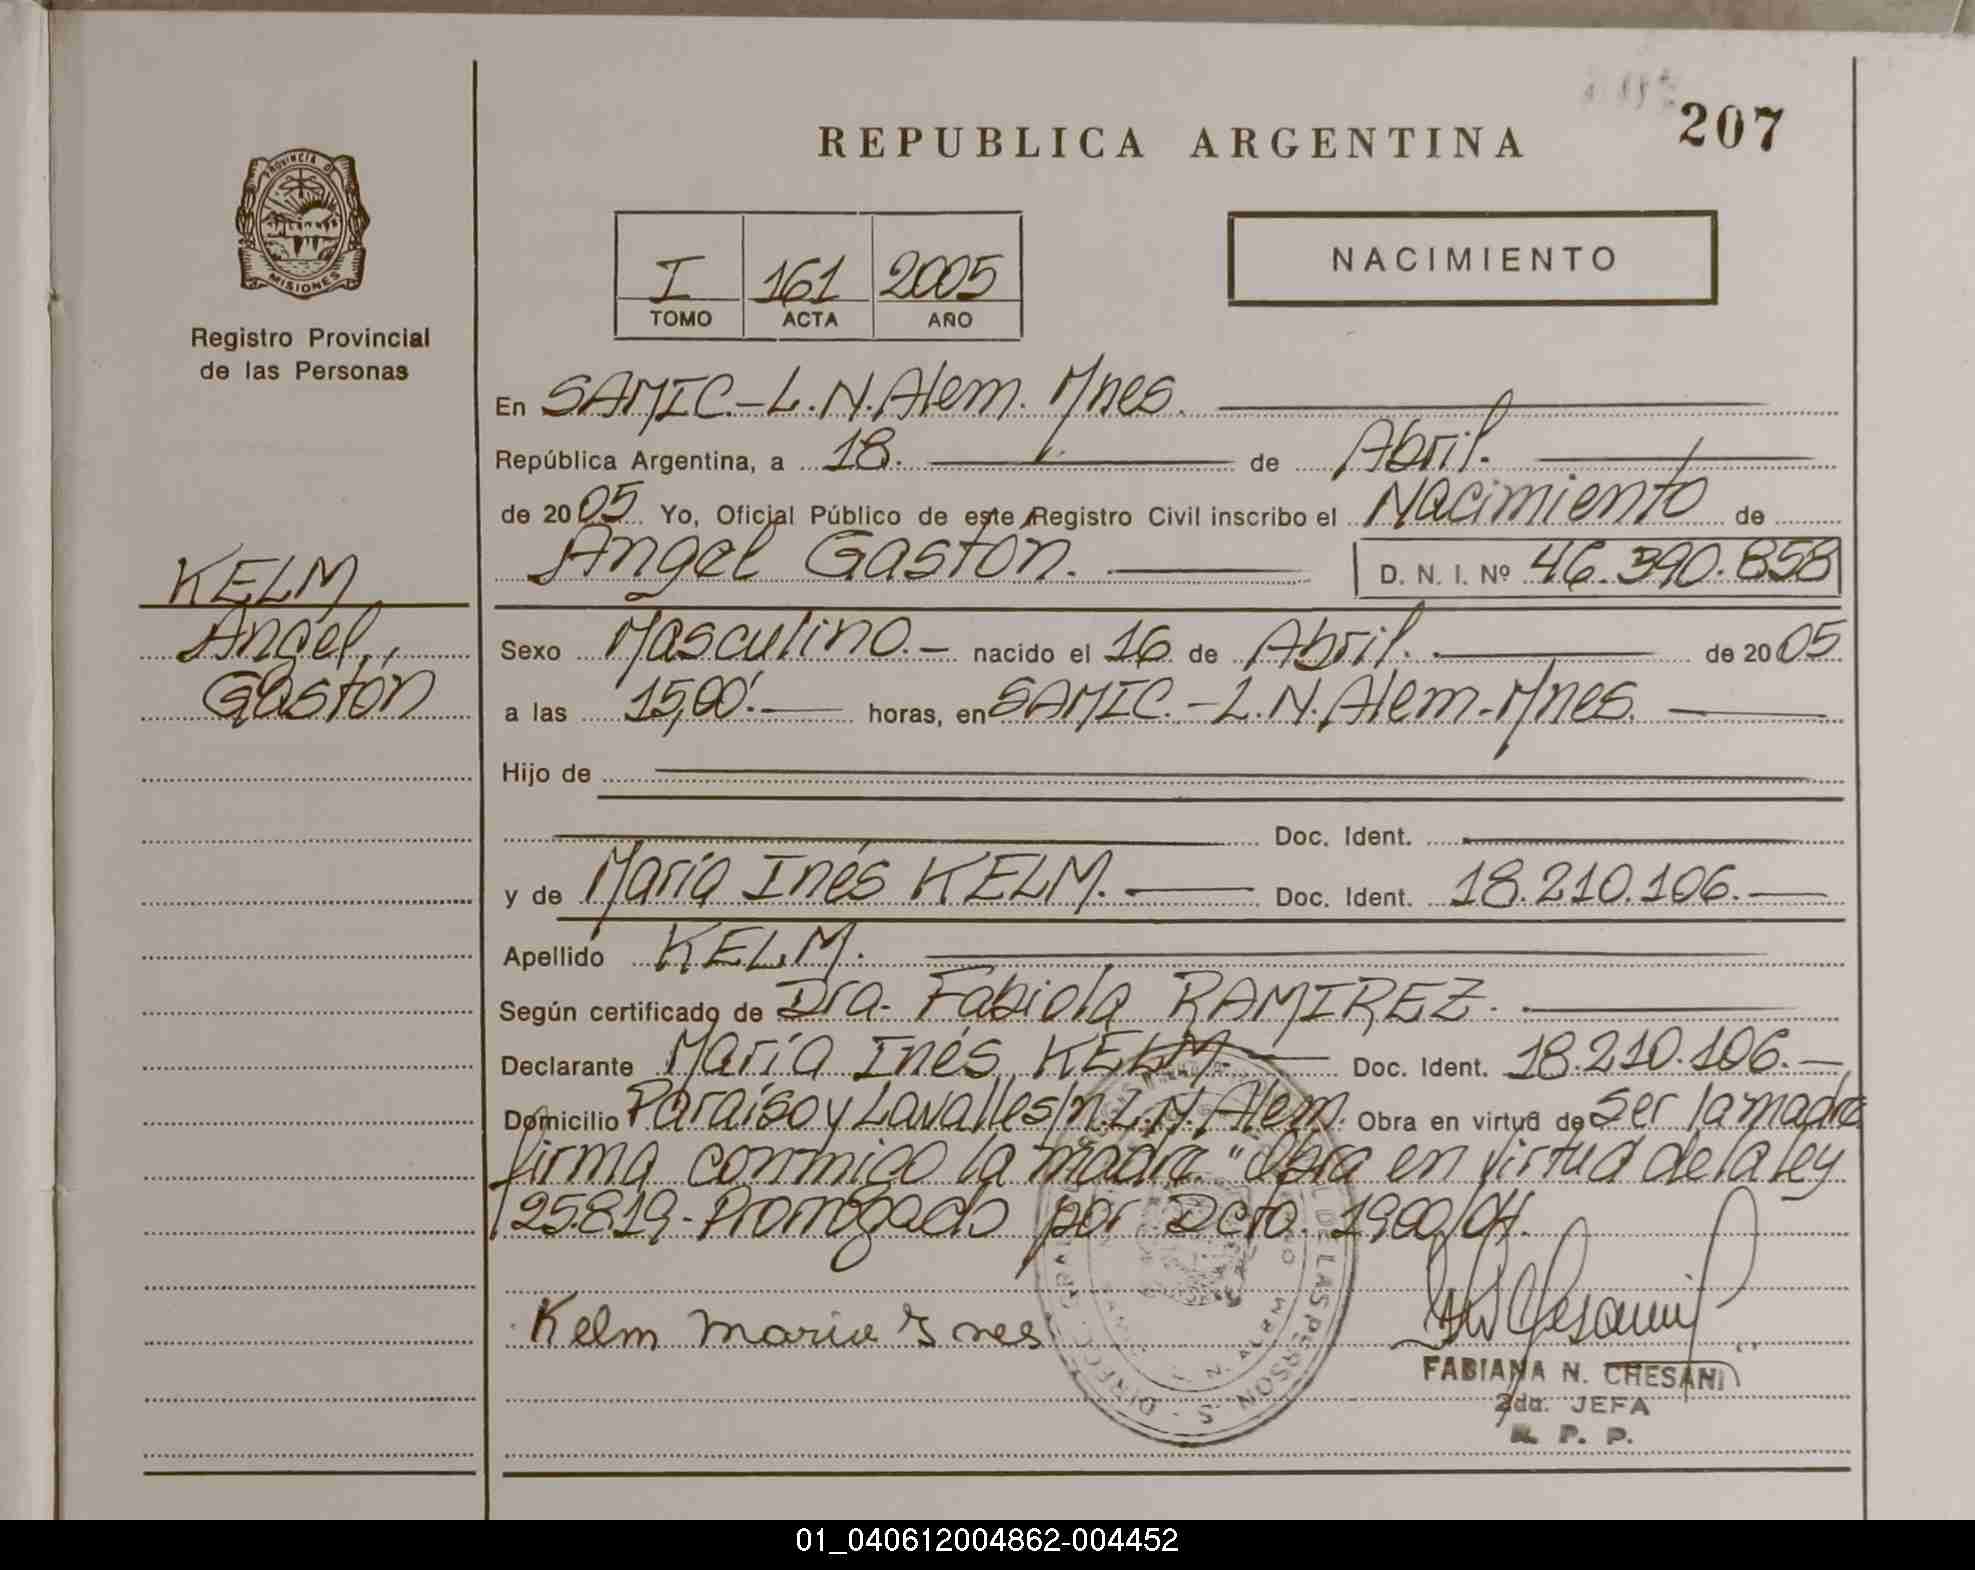 REPUBLICA ARGENTINA
207
PROVINCIA D
MISIONES
Registro Provincial
de las Personas
I 161 2005
TOMO ACTA AÑO
NACIMIENTO
En SAMIC.-L.N.Alem. Mnes.
República Argentina, a 18. de Abril.
de 2005 Yo, Oficial Público de este Registro Civil inscribo el Nacimiento de
Angel Gastón. D. N. I. Nº 46.390.858
KELM
Angel,
Gastón
Sexo Masculino.- nacido el 16 de Abril. de 2005
a las 15,00'. horas, en SAMIC.-L.N.Alem-Mnes.
Hijo de
Doc. Ident.
y de María Inés KELM. Doc. Ident. 18.210.106.
Apellido KELM.
Según certificado de Dra. Fabiola RAMIREZ.
Declarante María Inés KELM. Doc. Ident. 18.210.106.
Domicilio Paraíso y Lavalle s/n.L.N.Alem. Obra en virtud de Ser la madre
firma conmigo la madre "Obra en virtud de la ley
25.819-Prorrogado por Dcto. 1900/04.
Kelm Maria Ines
FABIANA N. CHESANI
2da. JEFA
R. P. P.
01_040612004862-004452